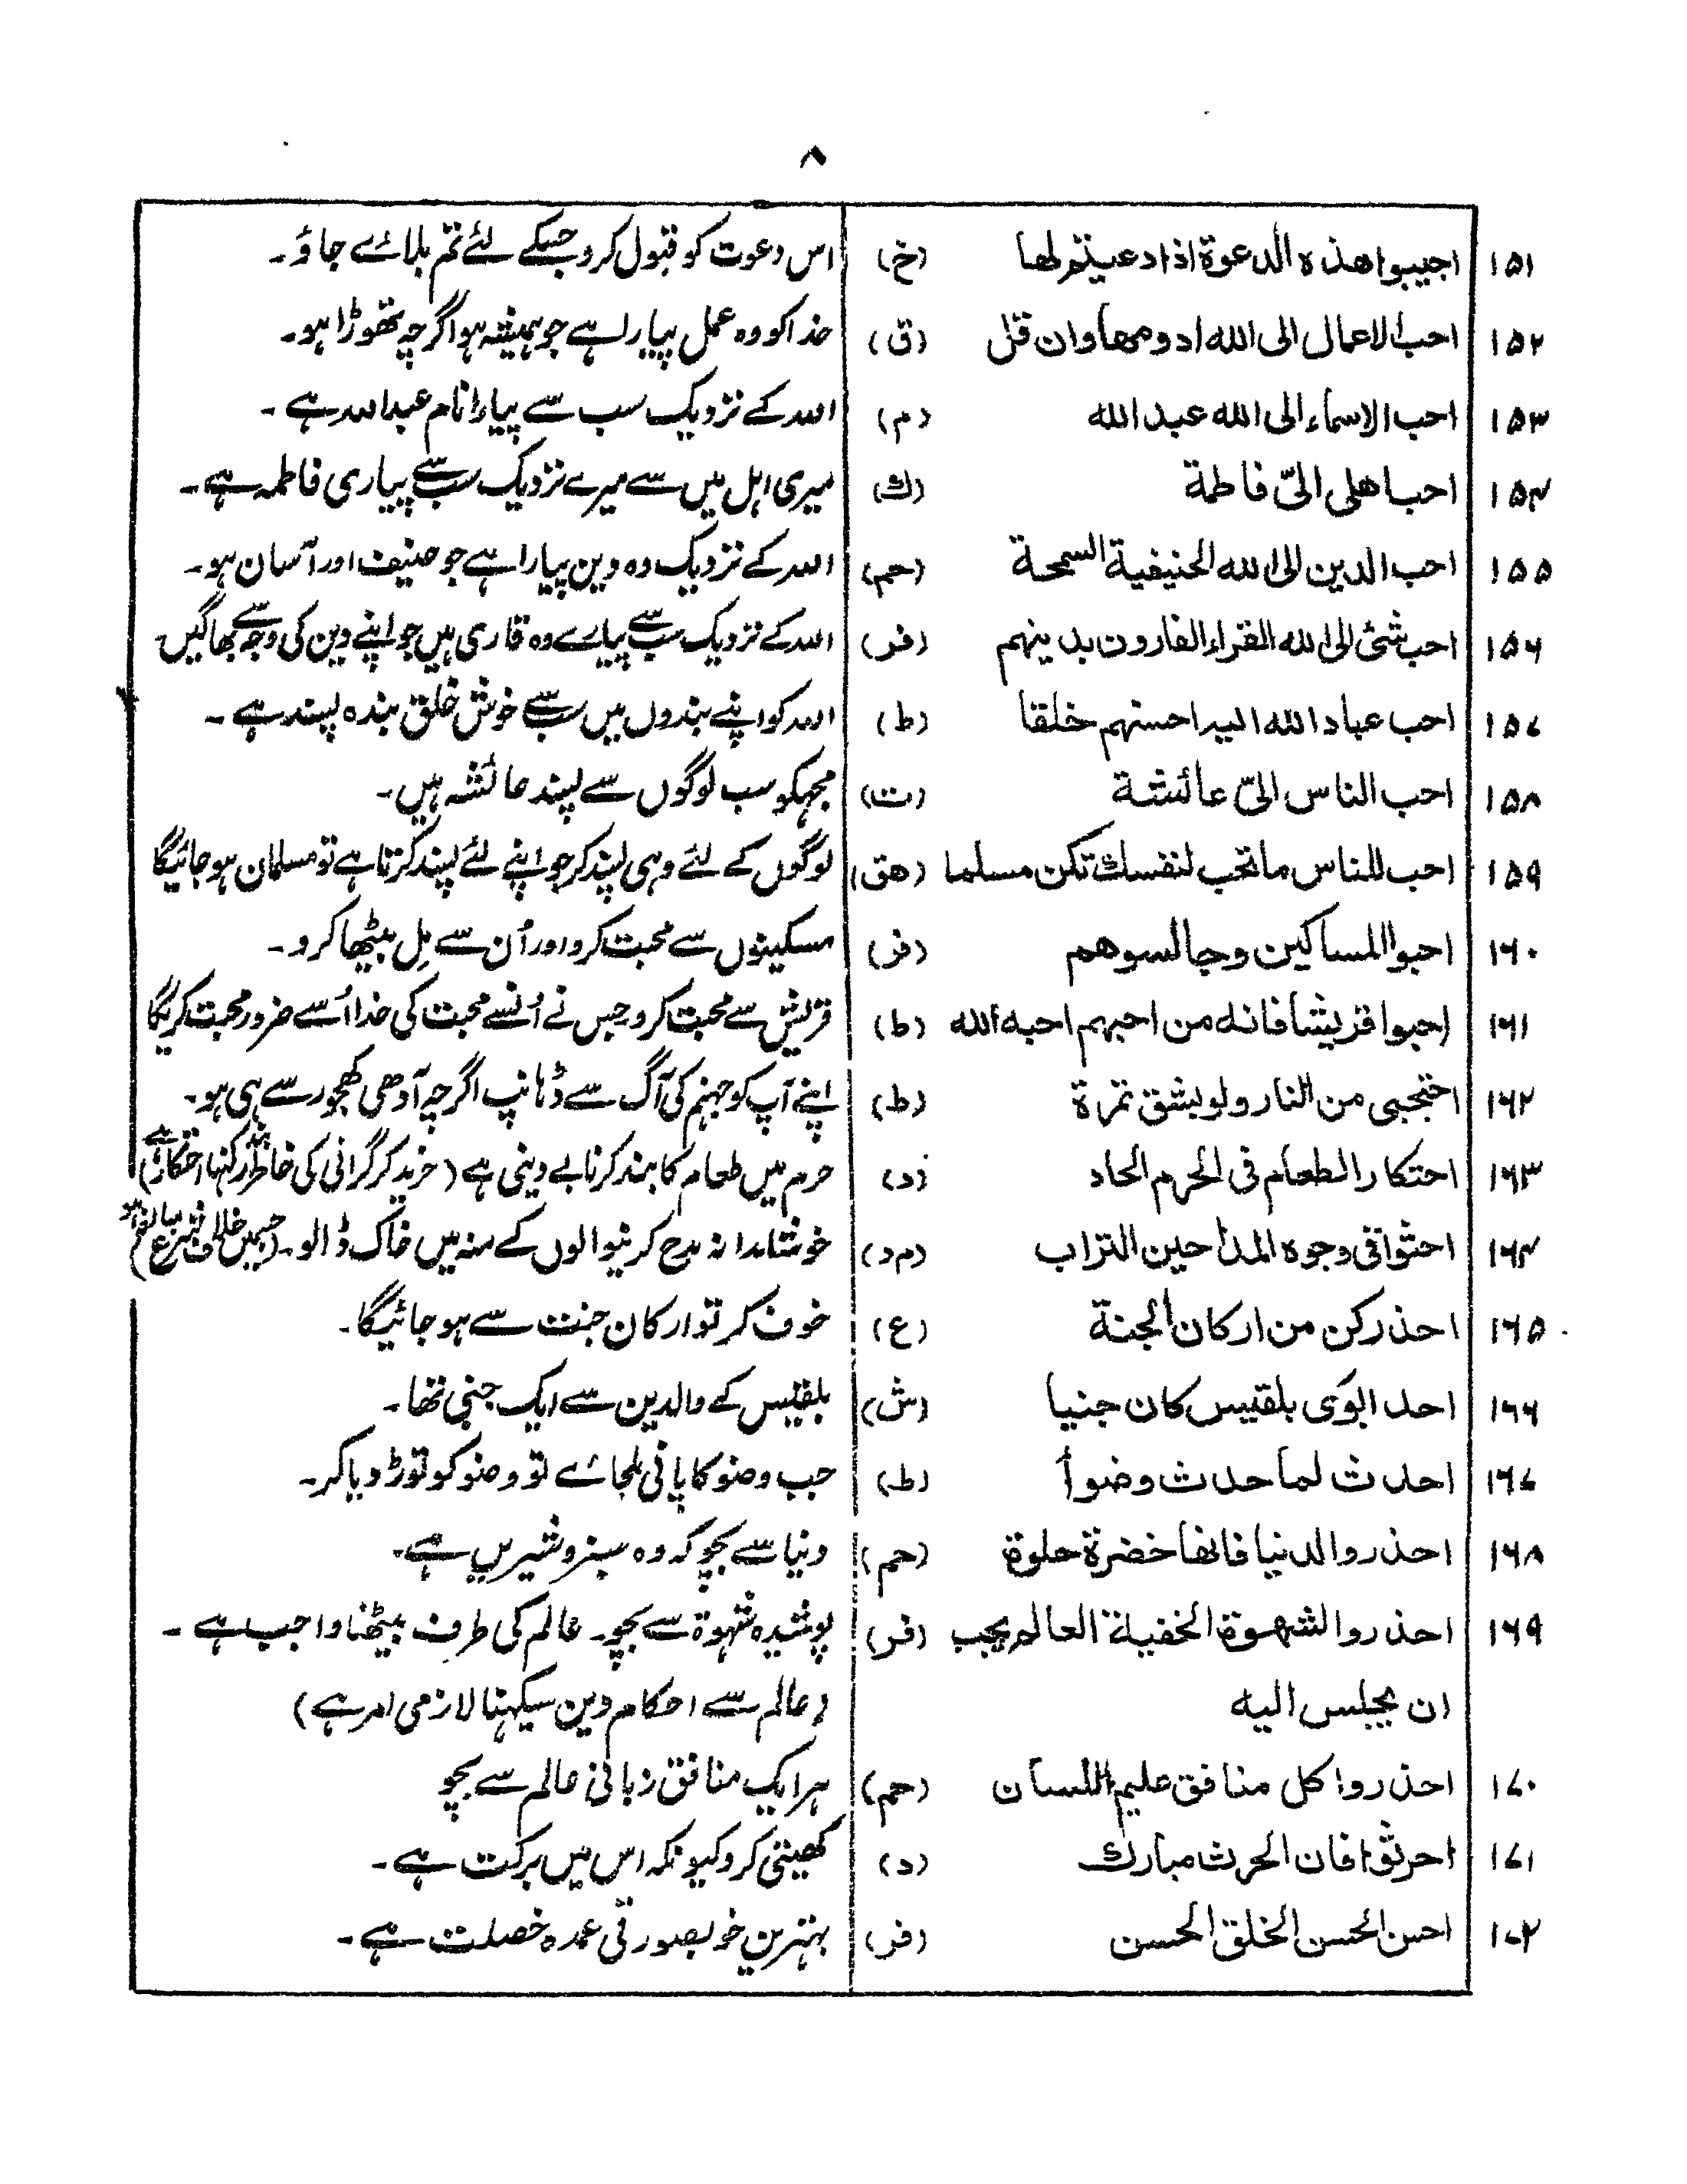 ۸
۱۵۱ اجیبوا هذه الدعوة اذا دعیتم لها (خ) اس دعوت کو قبول کرو جسکے لئے تم بلائے جاؤ۔
۱۵۲ احب الاعمال الی الله ادومها وان قل (ق) خدا کو وہ عمل پیارا ہے جو ہمیشہ ہو اگرچہ تھوڑا ہو۔
۱۵۳ احب الاسماء الی الله عبد الله (م) اللہ کے نزدیک سب سے پیارا نام عبداللہ ہے۔
۱۵۴ احب اهلی الیّ فاطمة (ك) میری اہل میں سے میرے نزدیک سب سے پیاری فاطمہ ہے۔
۱۵۵ احب الدین الی الله الحنیفیة السمحة (حم) اللہ کے نزدیک وہ دین پیارا ہے جو حنیف اور آسان ہو۔
۱۵۶ احب شئ الی الله القراء الفارون بدینهم (فر) اللہ کے نزدیک سب سے پیارے وہ قاری ہیں جو اپنے دین کی وجہ سے بھاگیں
۱۵۷ احب عباد الله الیه احسنهم خلقا (ط) اللہ کو اپنے بندوں میں سب سے خوش خلق بندہ پسند ہے۔
۱۵۸ احب الناس الیّ عائشة (ت) مجہکو سب لوگوں سے پسند عائشہ ہیں۔
۱۵۹ احب للناس ما تحب لنفسك تکن مسلما (هق) لوگوں کے لئے وہی پسند کر جو اپنے لئے پسند کرتا ہے تو مسلمان ہو جائیگا
۱۶۰ احبوا المساکین وجالسوهم (فر) مسکینوں سے محبت کرو اور اُن سے مِل بیٹھا کرو۔
۱۶۱ احبوا قریشا فانه من احبهم احبه الله (ط) قریش سے محبت کرو جس نے اُنسے محبت کی خدا اُسے ضرور محبت کریگا
۱۶۲ احتجبی من النار ولو بشق تمرة (ط) اپنے آپ کو جہنم کی آگ سے ڈہانپ اگرچہ آدھی کھجور سے ہی ہو۔
۱۶۳ احتکار الطعام فی الحرم الحاد (د) حرم میں طعام کا بند کرنا بے دینی ہے (خرید کر گرانی کی خاطر
۱۶۴ احثوا فی وجوه المداحین التراب (م د) خوشامدانہ مدح کرنیوالوں کے منہ میں خاک ڈالو۔ (جسمیں خلاف شرع مبالغہ ہو)
۱۶۵ احذ رکن من ارکان الجنة (ع) خوف کر تو ارکان جنت سے ہو جائیگا۔
۱۶۶ احد ابوی بلقیس کان جنیا (ش) بلقیس کے والدین سے ایک جنی تھا۔
۱۶۷ احدث لما حدث وضوأ (ط) جب وضو کا پانی ملجائے تو وضو کو توڑ دیا کر۔
۱۶۸ احذروا الدنیا فانها خضرة حلوة (حم) دنیا سے بچو کہ وہ سبز و شیریں ہے۔
۱۶۹ احذروا الشهوة الخفیة العالم یحب (فر) پوشیدہ شہوۃ سے بچو۔ عالم کی طرف بیٹھنا واجب ہے۔
ان یجلس الیه (عالم سے احکام دین سیکہنا لازمی امر ہے)
۱۷۰ احذروا کل منافق علیم اللسان (حم) ہر ایک منافق زبانی عالم سے بچو
۱۷۱ احرثوا فان الحرث مبارك (د) کھیتی کرو کیونکہ اس میں برکت ہے۔
۱۷۲ احسن الحسن الخلق الحسن (فر) بہترین خوبصورتی عمدہ خصلت ہے۔